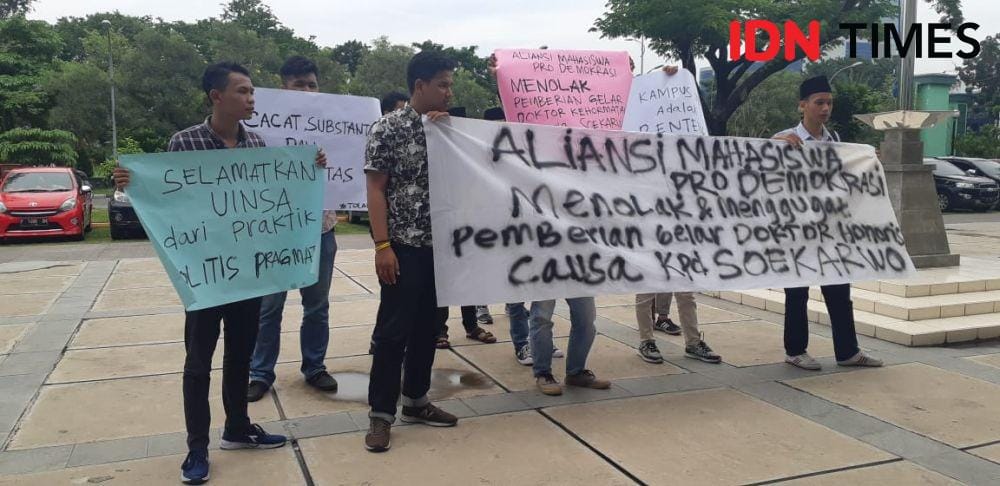 IDN TIMES
ALIANSI MAHASISWA
PRO DEMOKRASI
MENOLAK
PEMBERIAN GELAR
DOKTOR KEHORMATA
SOEKAR
CACAT SUBSTANT
TAS
#TOLA
KAMPUS
adalah
SELAMATKAN
UINSA
dari PRAKTIK
OLITIS PRAGMAT
ALIANSI MAHASISWA
PRO DEMOKRASI
Menolak & menggugat
Pemberian Gelar DOKTOR Honoris
Causa Kpd SOEKARWO